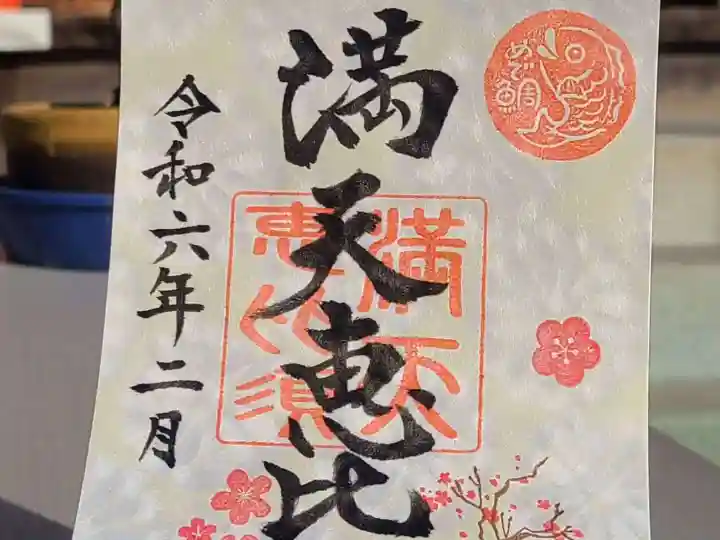 めで鯛
満天恵比
満天
恵比須
令和六年二月